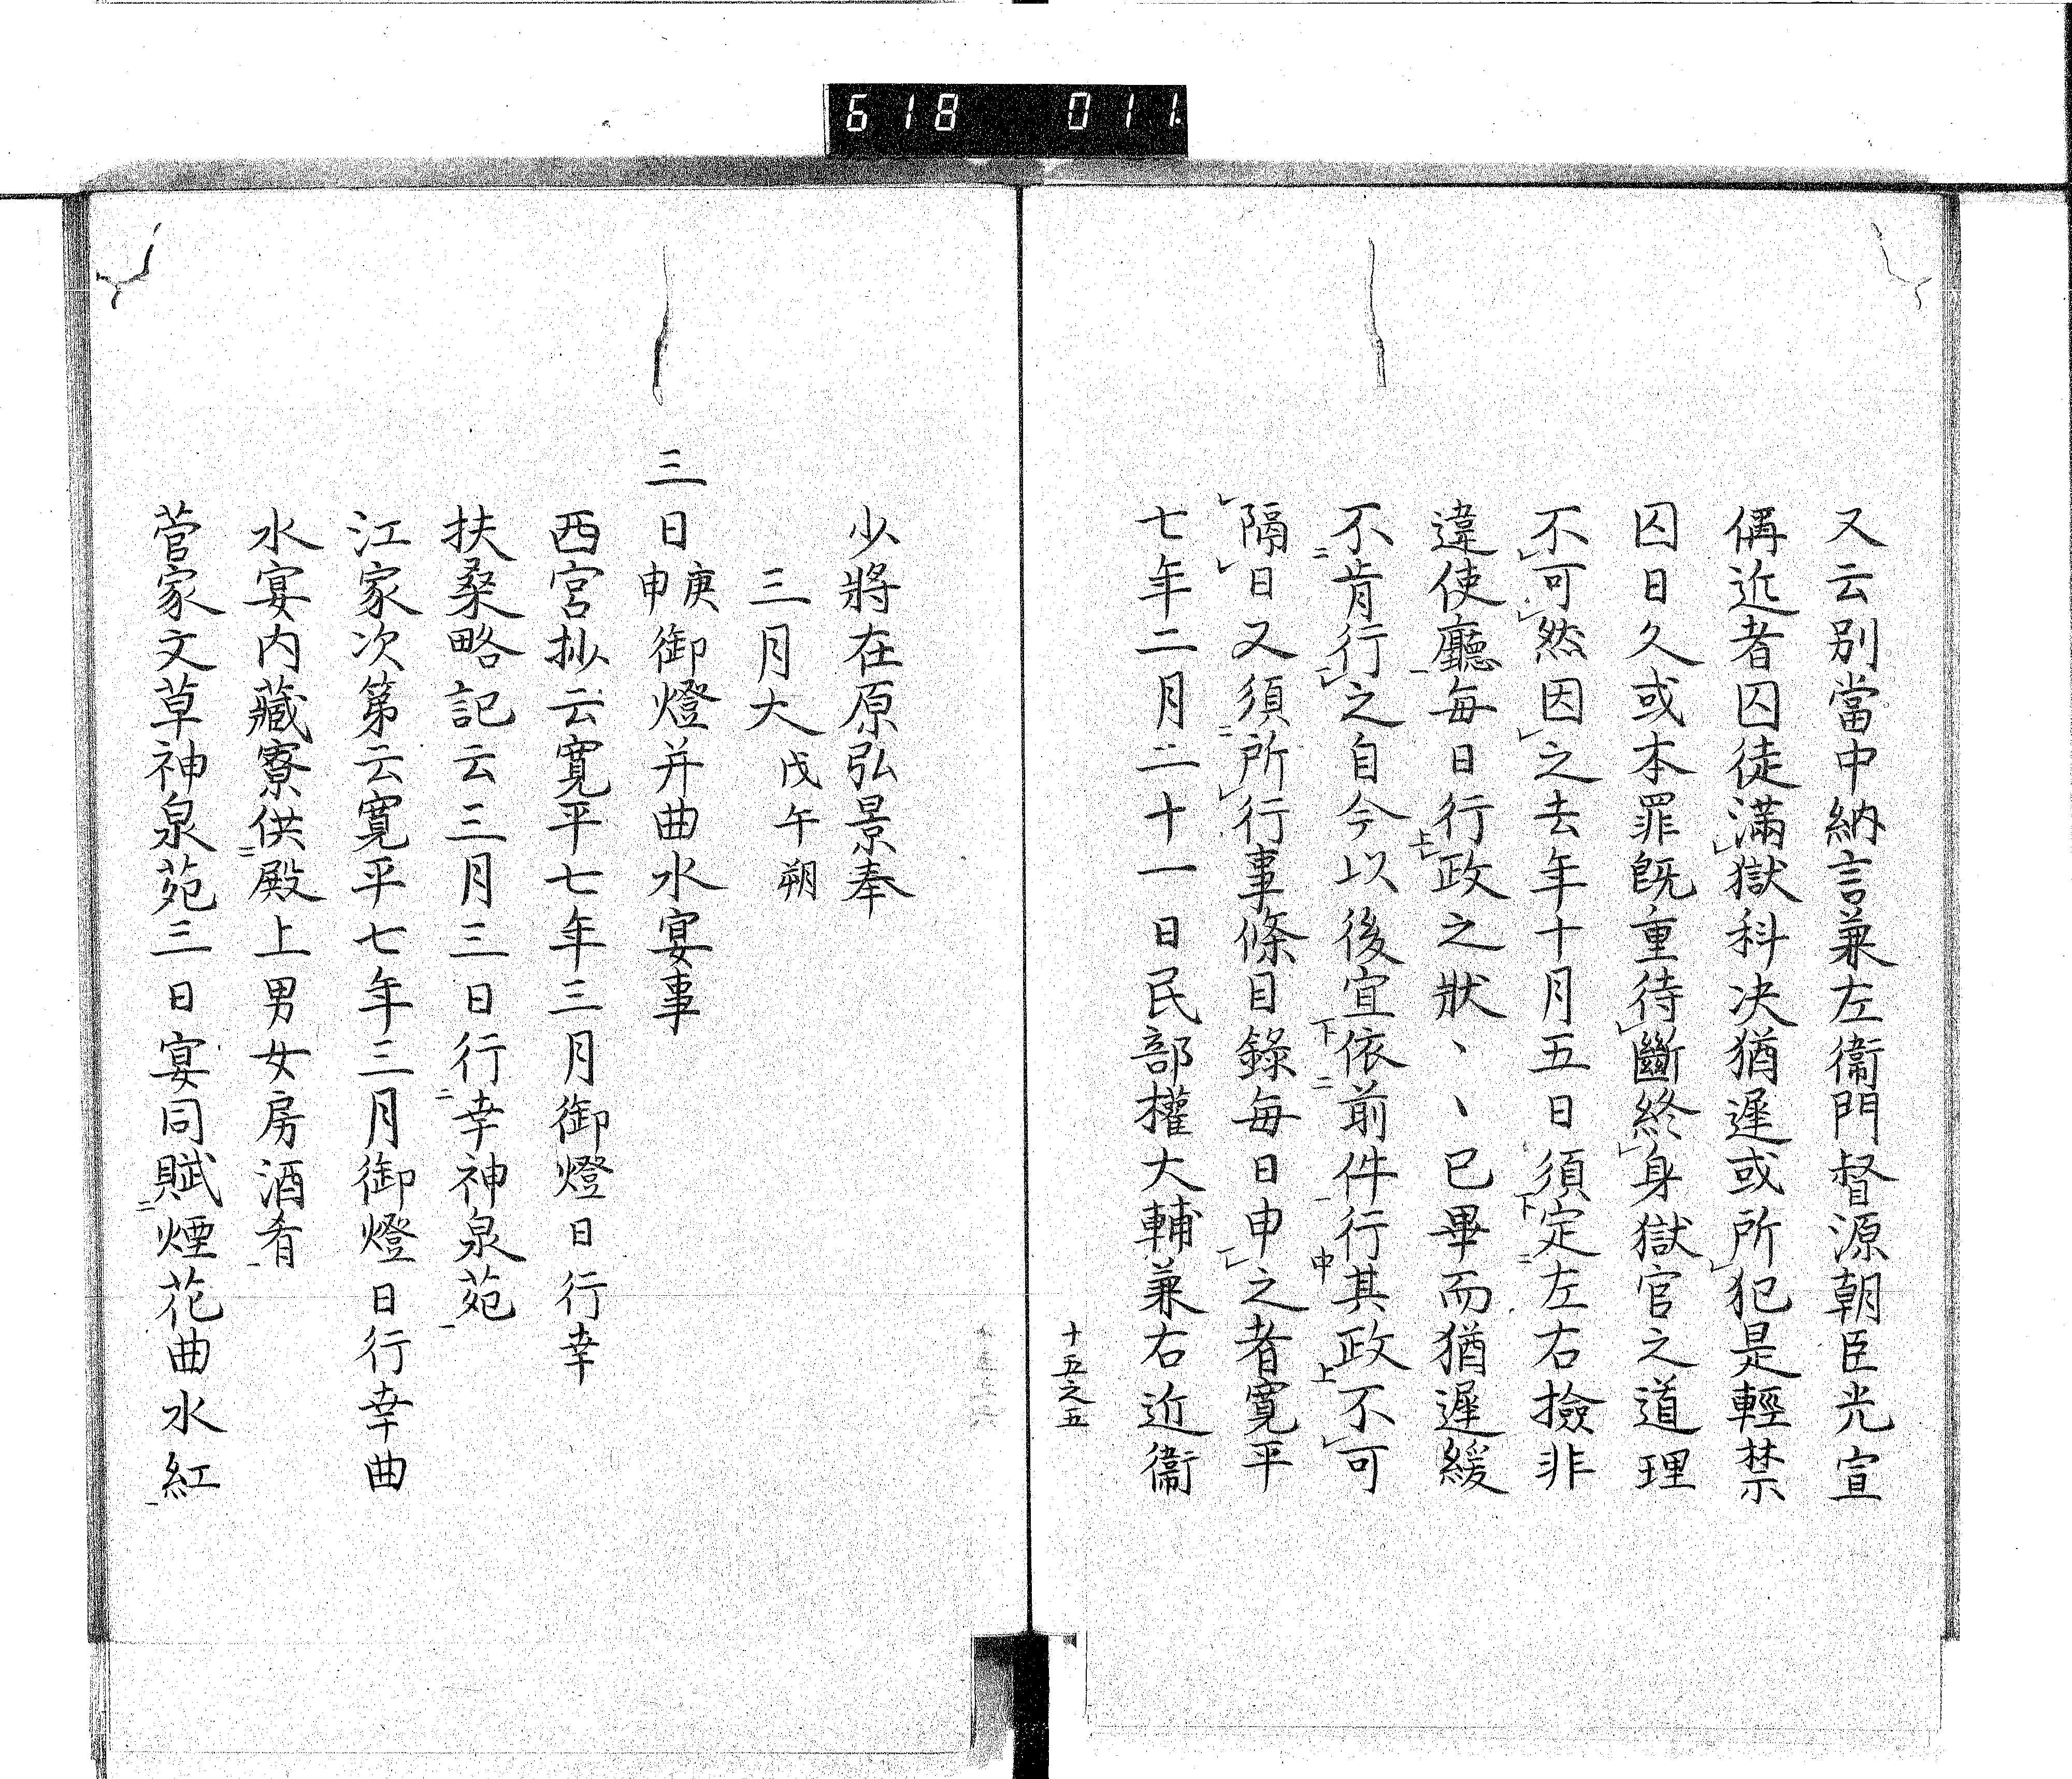 618 011.
又云別當中納言兼左衞門督源朝臣光宣
偁近者囚徒滿獄科決猶遲或所犯是輕禁
囚日久或本罪旣重待斷終身獄官之道理
不可然因之去年十月五日須定左右撿非
違使廳每日行政之狀、、已畢而猶遲緩
不肯行之自今以後宜依前件行其政不可
隔日又須所行事條目錄每日申之者寬平
七年二月二十一日民部權大輔兼右近衞
十五之五
少將在原弘景奉
三月大戊午朔
三日庚申御燈并曲水宴事
西宮抄云寬平七年三月御燈日行幸
扶桑略記云三月三日行幸神泉苑
江家次第云寬平七年三月御燈日行幸曲
水宴内藏寮供殿上男女房酒肴
菅家文草神泉苑三日宴同賦煙花曲水紅